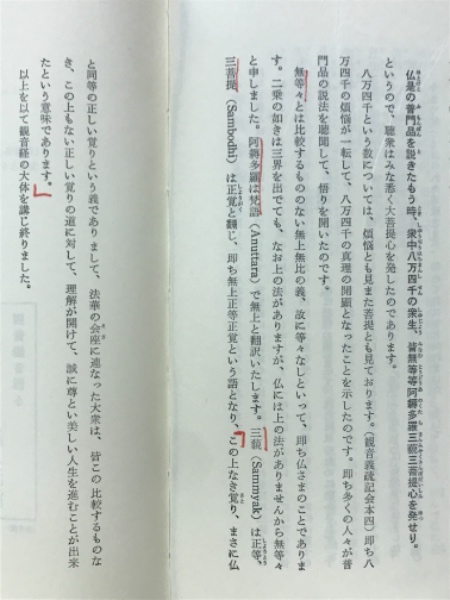 仏是の普門品を説きたもう時、衆中八万四千の衆生、皆無等等阿耨多羅三藐三菩提心を発せり。
というので、聴衆はみな悉く大菩提心を発したのであります。
八万四千という数については、煩悩とも見また菩提とも見ております。（観音義疏記会本四）即ち八
万四千の煩悩が一転して、八万四千の真理の開顕となったことを示したのです。即ち多くの人々が普
門品の説法を聴聞して、悟りを開いたのです。
無等々とは比較するもののない無上無比の義、故に等々なしといって、即ち仏さまのことでありま
す。二乗の如きは三界を出でても、なお上の法がありますが、仏には上の法がありませんから無等々
と申しました。阿耨多羅は梵語（Anuttara）で無上と翻訳いたします。三藐（Sammyak）は正等、
三菩提（Sambodhi）は正覚と翻じ、即ち無上正等正覚という語となり、この上なき覚り、まさに仏
と同等の正しい覚りという義でありまして、法華の会座に連なった大衆は、皆この比較するものな
き、この上もない正しい覚りの道に対して、理解が開けて、誠に尊とい美しい人生を進むことが出来
たという意味であります。
以上を以て観音経の大体を講じ終りました。